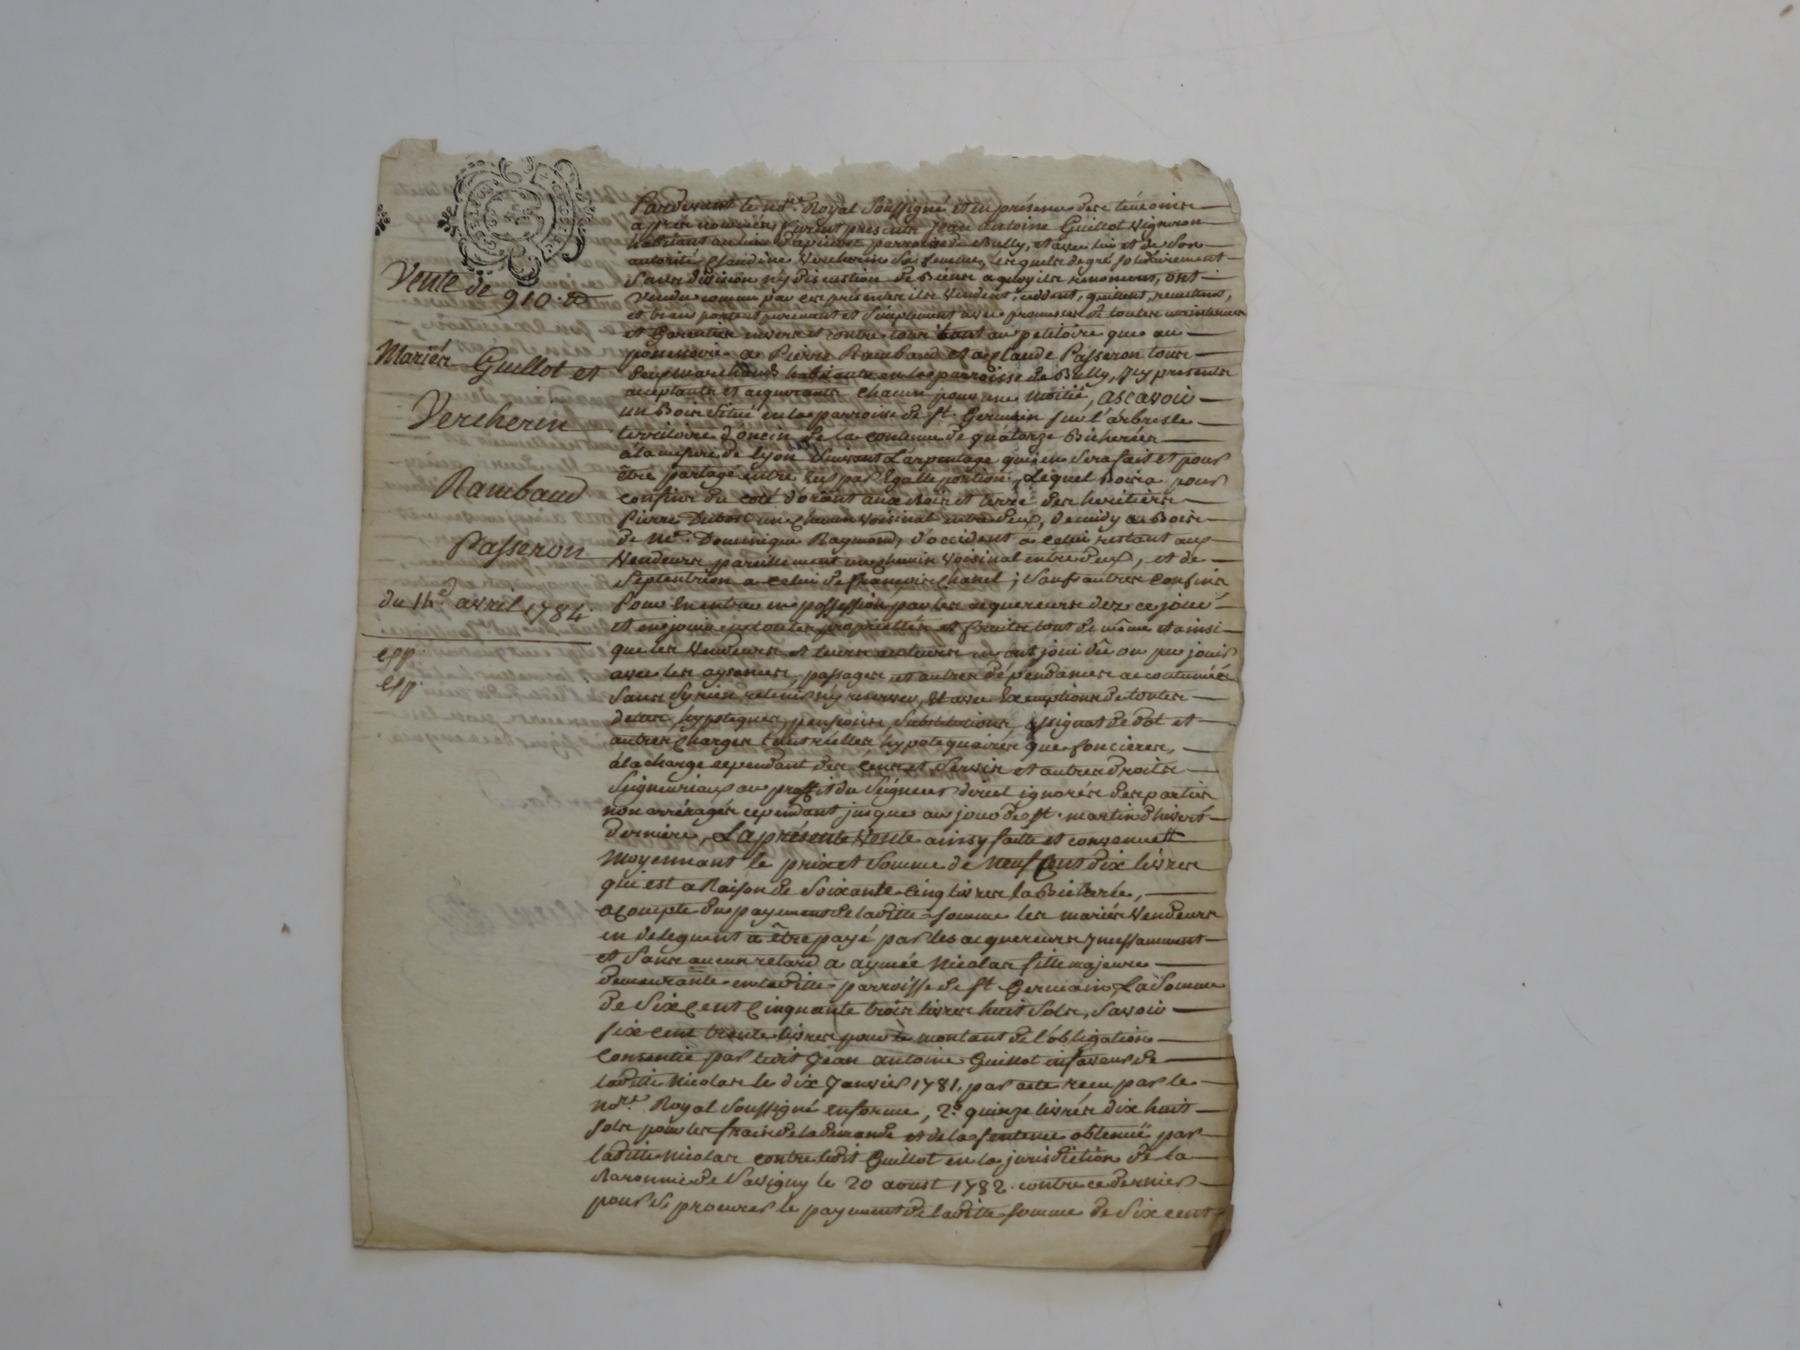 Vente de 910 ₶
Mariés Guillot et
Vercherin
Rambaud
Passeron
du 14e avril 1784
exp.
exp.
Pardevant le nore. Royal soussigné et en présence des témoins
après nommés, furent présents Jean Antoine Guillot vigneron
habitant au lieu parroisse de Bully, et avec lui et de son
autorité Claudine Vercherin sa femme, lesquels de gré solidairement
sans division ny discution de biens a quoy ils renoncent, ont
vendu comme par ces présentes ils vendent, cedent, quittent, remettent,
et bien purement et simplement avec promesses de toutes maintenues
et garanties envers et contre tous tant au petitoire que au
possessoire a Pierre Rambaud et a Claude Passeron tous
deux marchands habitants en la parroisse de Bully, icy présents
acceptants et acquerants chacun pour une moitié, ascavoir
un Bois situé en la parroisse de st. Germain sur l'arbresle
territoire d'oncin de la contenue de quatorze Bicherées
à la mesure de Lyon suivant l'arpentage qui en sera fait et pour
être partagé entre eux par égalle portion, Lequel Bois a pour
confins du coté d'orient aux Bois et terre des heritiers
Pierre Dubost un chemin voisinal entre deux, de midy au Bois
de Me. Dominique Raymond, d'occident à celui restant aux
vendeurs pareillement un chemin voisinal entre deux, et de
septentrion a celui de françois Chanel; sauf autres confins
Pour en entrer en possession par les acquereurs dez ce jour
et en jouir en toutes proprietés et fruits tout de même et ainsi
que les vendeurs et leurs auteurs en ont joui dû ou pu jouir
avec les aysances, passages et autres dépendances accoutumées
sans sy rien retenir ny reserver, et avec exemptions de toutes
dettes, hypoteques, pensions, substitutions, assignat de dot et
autres charges tant réelles hypotequaires que foncieres,
à la charge cependant des cens et servis et autres droits
seigneuriaux au proffit du seigneur direct ignorés des parties
non arréragés cependant jusque au jour de st. martin d'hivert
derniere, La présente vente ainsy faitte et convenue
moyennant le prix et somme de neuf cent dix livres
qui est a raison de soixante cinq livres la Bicherée,
a compte du payement de laditte somme les mariés vendeurs
en deleguent à être payé par les acquereurs incessamment
et sans aucun retard a aymée Nicolas fille majeure
demeurante en laditte parroisse de st Germain, La somme
de six cent cinquante trois livres huit sols, savoir
six cent trente livres pour le montant de l'obligation
consentie par ledit Jean antoine Guillot en faveur de
laditte Nicolas le dix Janvier 1781. par acte recu par le
nore. Royal soussigné en forme, 2°. quinze livres dix huit
sols pour les frais de la demande et de la sentence obtenuë par
laditte Nicolas contre ledit Guillot en la jurisdiction de la
Baronnie de Savigny le 20 aoust 1782. contre ce dernier
pour se procurer le payement de laditte somme de six cent